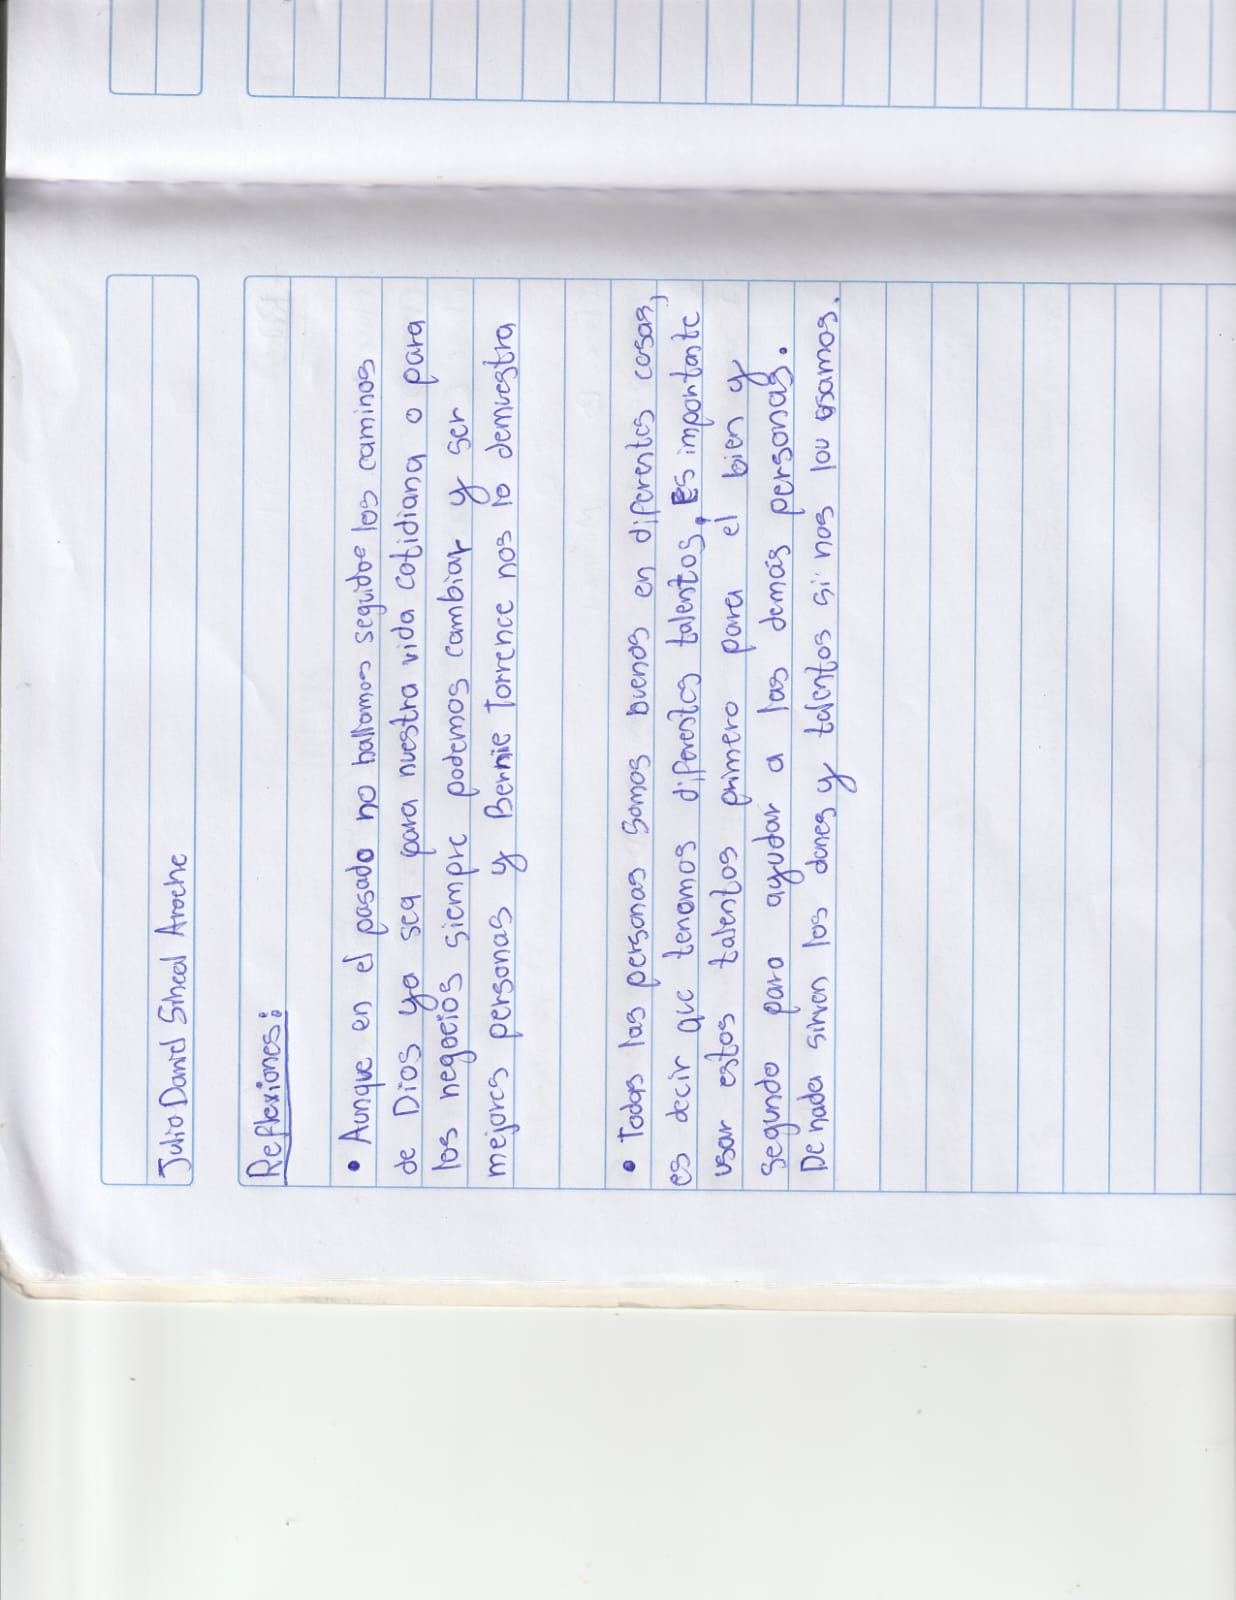 Julio Daniel Siheal Aroche
Reflexiones:
• Aunque en el pasado no hallamos seguidos los caminos
de Dios ya sea para nuestra vida cotidiana o para
los negocios siempre podemos cambiar y ser
mejores personas y Bernie Torrence nos lo demuestra
• Todas las personas somos buenos en diferentes cosas,
es decir que tenemos diferentes talentos. Es importante
usar estos talentos primero para el bien y
segundo para ayudar a las demás personas.
De nada sirven los dones y talentos si nos los usamos.